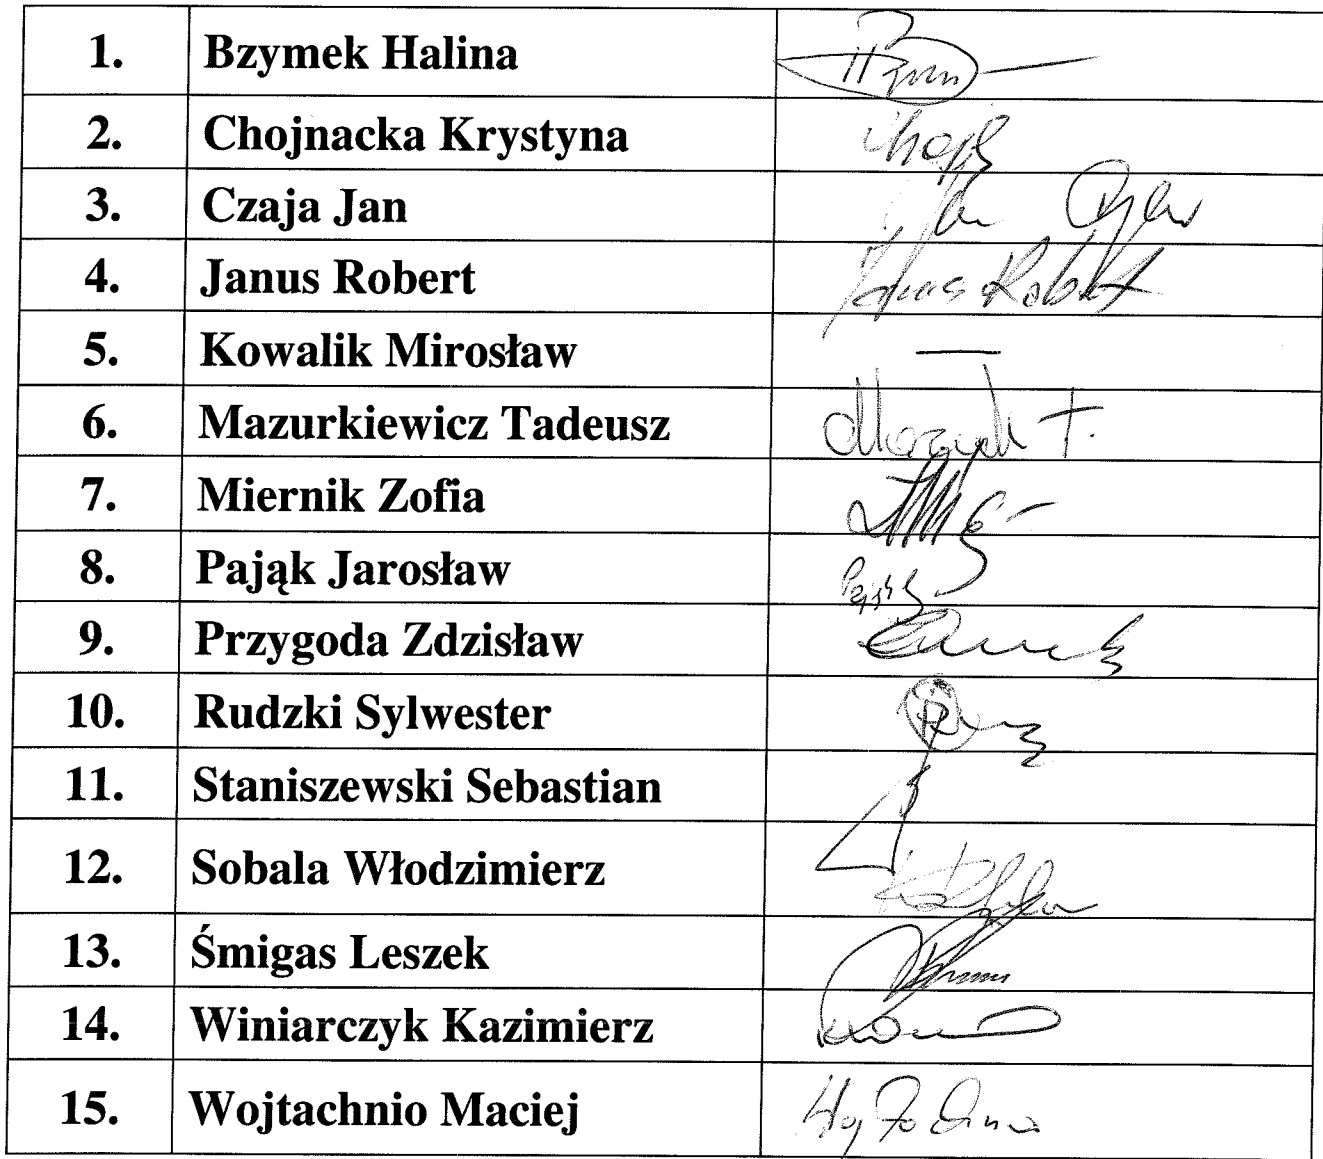 1. Bzymek Halina
2. Chojnacka Krystyna
3. Czaja Jan
4. Janus Robert Janus Robert
5. Kowalik Mirosław —
6. Mazurkiewicz Tadeusz
7. Miernik Zofia
8. Pająk Jarosław
9. Przygoda Zdzisław
10. Rudzki Sylwester
11. Staniszewski Sebastian
12. Sobala Włodzimierz
13. Śmigas Leszek
14. Winiarczyk Kazimierz
15. Wojtachnio Maciej